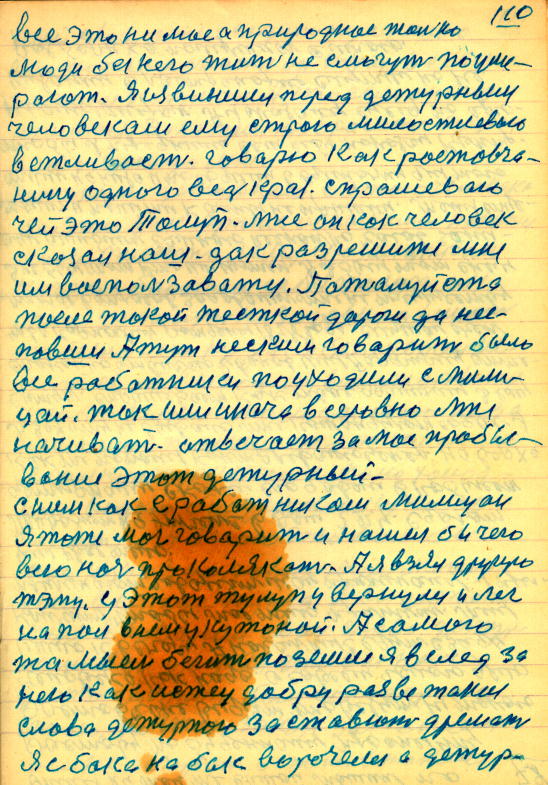 110
все это ни мое а природное только
люди без него жить не смогут поуми-
рают. Я извинился перед дежурным
человекам ему строго милостиевого
ветливаст. говарю Как ростовча-
нину одного вед края. спрашеваю
чей это Толуп. мне он как человек
сказал наш. дак разрешите мне
им воспользавату. Пожалуйста
после такой жесткой дороги да не
повеш Атут нескем говарить было
Все работники поуходили с мили-
цай. так или иначе всеровно мне
начиват. отвечает за мое пробы-
вание Этот дежурный-
с ним как с работникам милицаи
я тоже мог говарить и нашел бы чего
всю ночь прокалякать. А я взял другую
тэму. у Этот тулуп увернулся и лег
на пол внему кутоной. А самого
жа мысл бегит по земле я вслед за
него Как истец добру разве такии
слова дежурного заставют дремат
Я с бока на бак ворочелся а дежур-